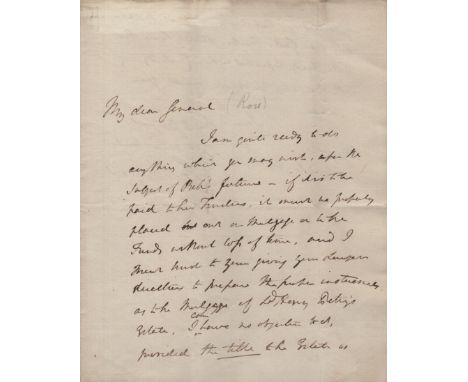 My dear General (Rose)
I am quite ready to do
anything which you may wish, upon the
Subject of fortune – if it is to be
paid to her Trustees, it must be properly
placed out on Mortgage or in the
Funds without loss of time, and I
must trust to your giving your Lawyer
directions to prepare the proper instruments
as to the Mortgage of Ld Henry
Estate, I can have no objection to it,
provided the title to the Estate is